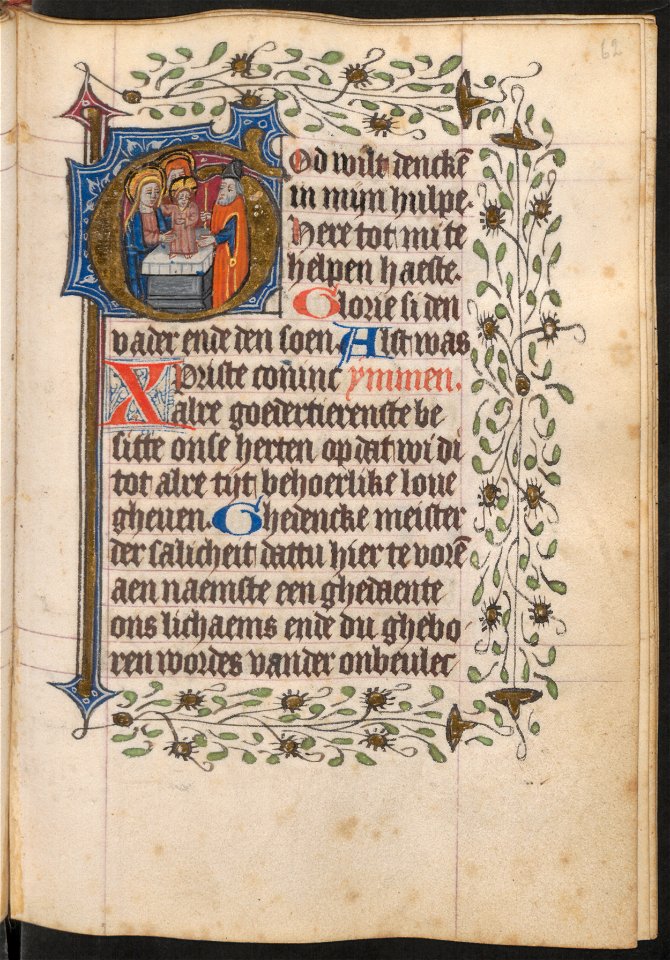 62
God wilt denckē
in mijn hulpe.
Here tot mi te
helpen haeste.
Glorie si den
vader ende den soen. Alst was
Xpriste coninc ymmen.
alre goedertierenste be
sitte onse herten op dat wi di
tot alre tijt behoerlike loue
gheuen. Ghedencke meister
der salicheit dattu hier te vorē
aen naemste een ghedaente
ons lichaems ende du ghebo
ren wordes vander onbeulec